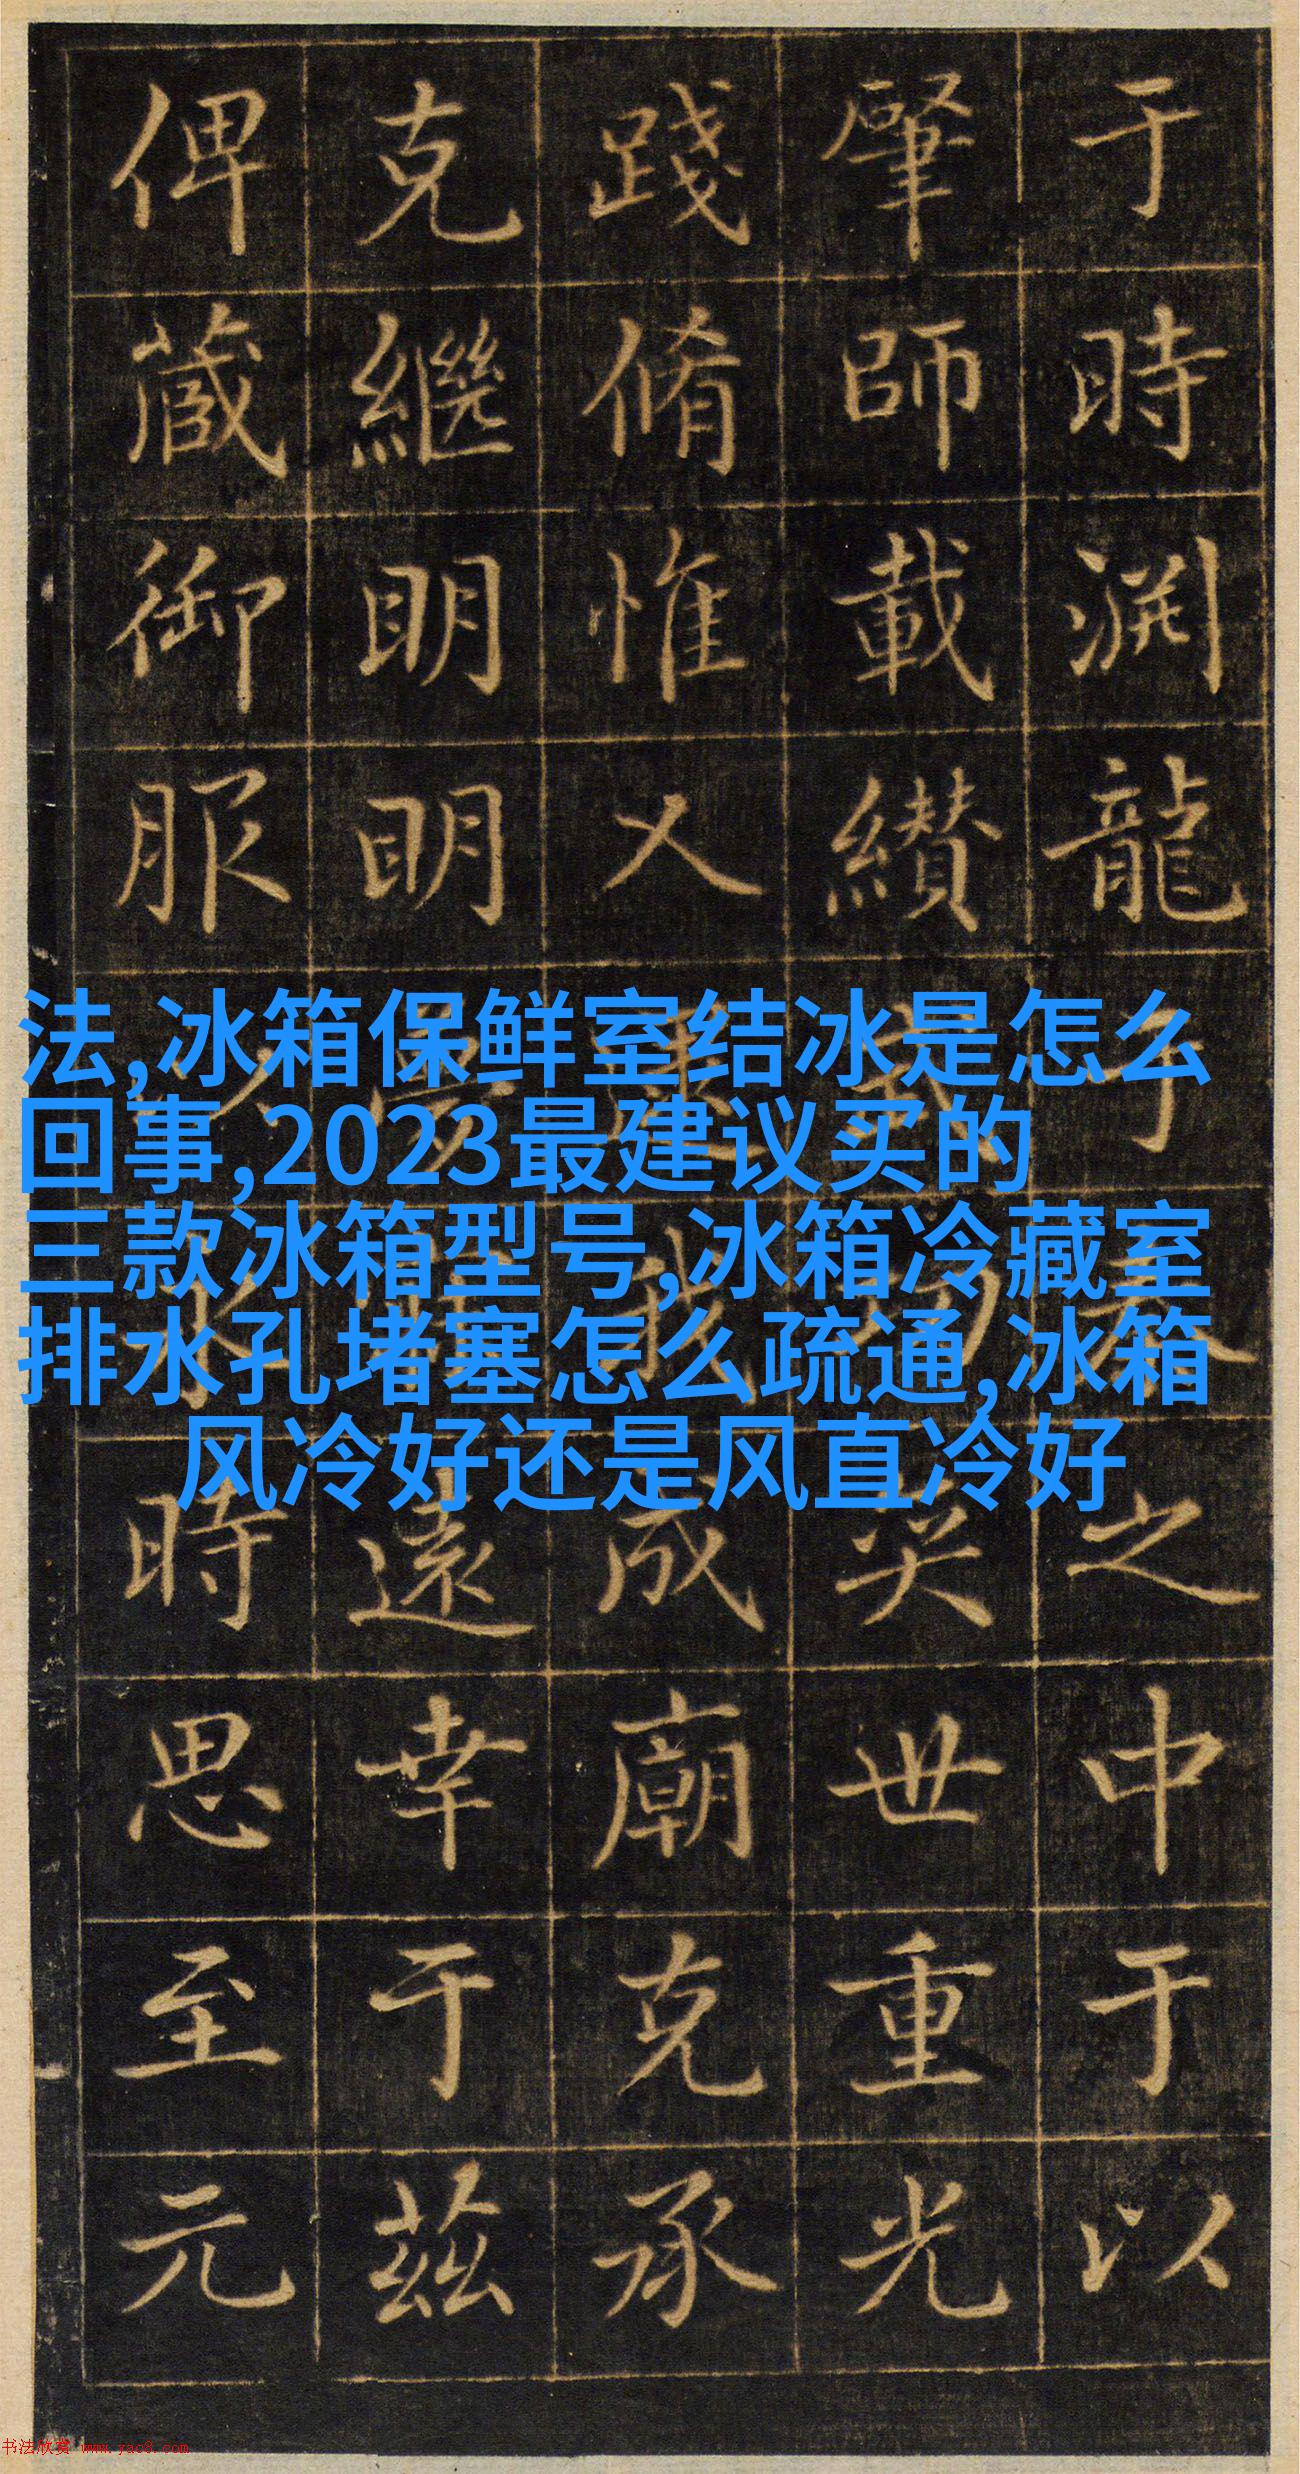 于時渊龍于之中于以
肇師載纘英世重光
踐脩惟乂成廟克承
克繼明明遠幸于茲
俾蔵御服永時思至元
法,冰箱保鲜室结冰是怎么
回事,2023最建议买的
三款冰箱型号,冰箱冷藏室
排水孔堵塞怎么疏通,冰箱
风冷好还是风直冷好
书法欣赏 www.yac8.com